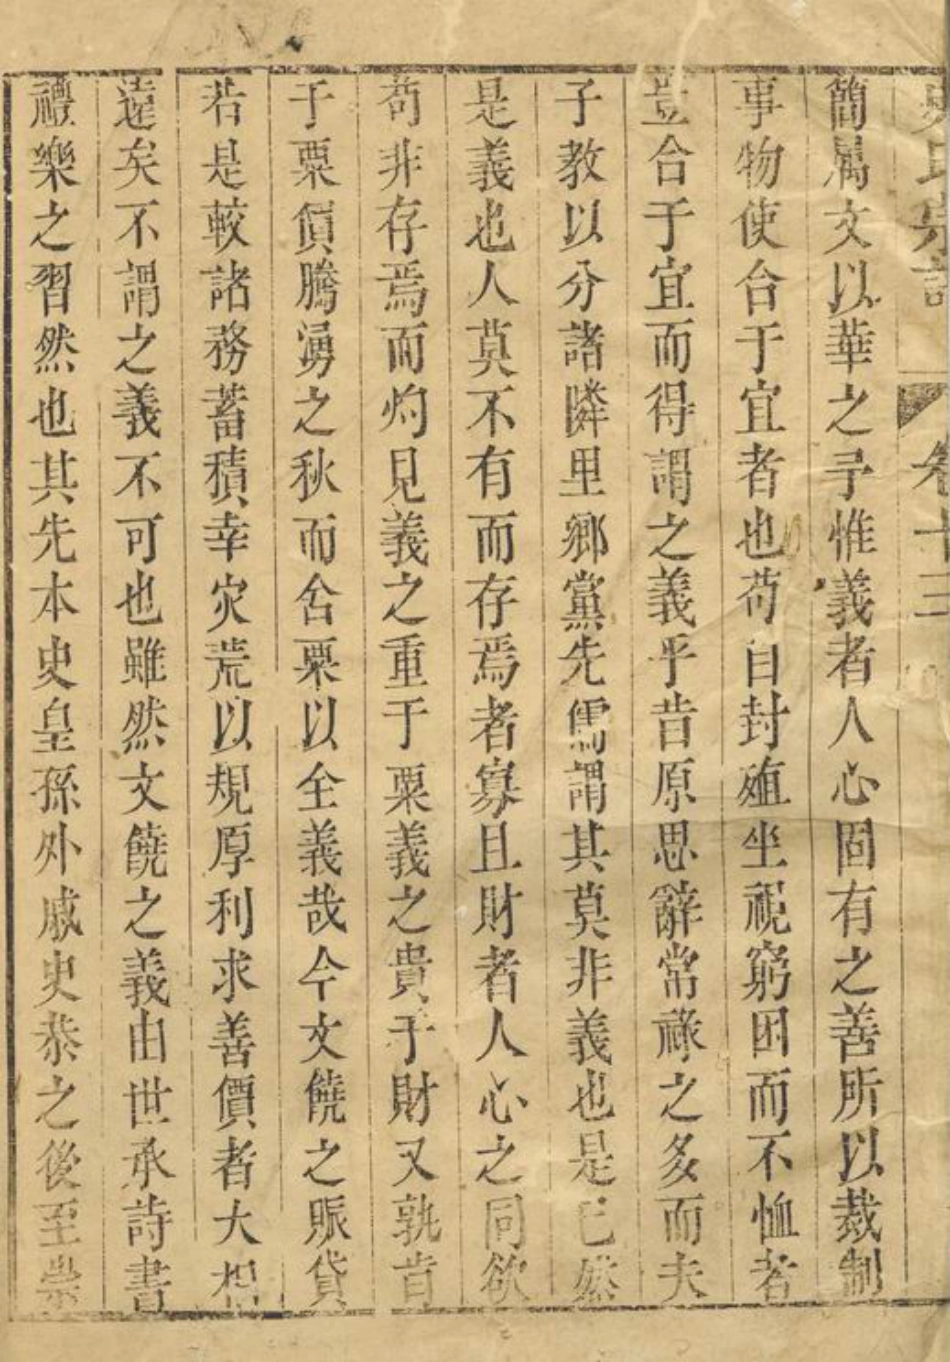 史氏宗譜 卷十三
簡属文以華之予惟義者人心固有之善所以裁制
事物使合于宜者也苟自封殖坐視窮困而不恤者
豈合于宜而得謂之義乎昔原思辭常祿之多而夫
子教以分諸隣里鄉黨先儒謂其莫非義也是已然
是義也人莫不有而存焉者寡且財者人心之同欲
苟非存焉而灼見義之重于粟義之貴于財又孰肯
于粟價騰湧之秋而舍粟以全義哉今文饒之賑貸
若是較諸務蓄積幸灾荒以規厚利求善價者大相
遠矣不謂之義不可也雖然文饒之義由世承詩書
禮樂之習然也其先本史皇孫外戚史恭之後至崇